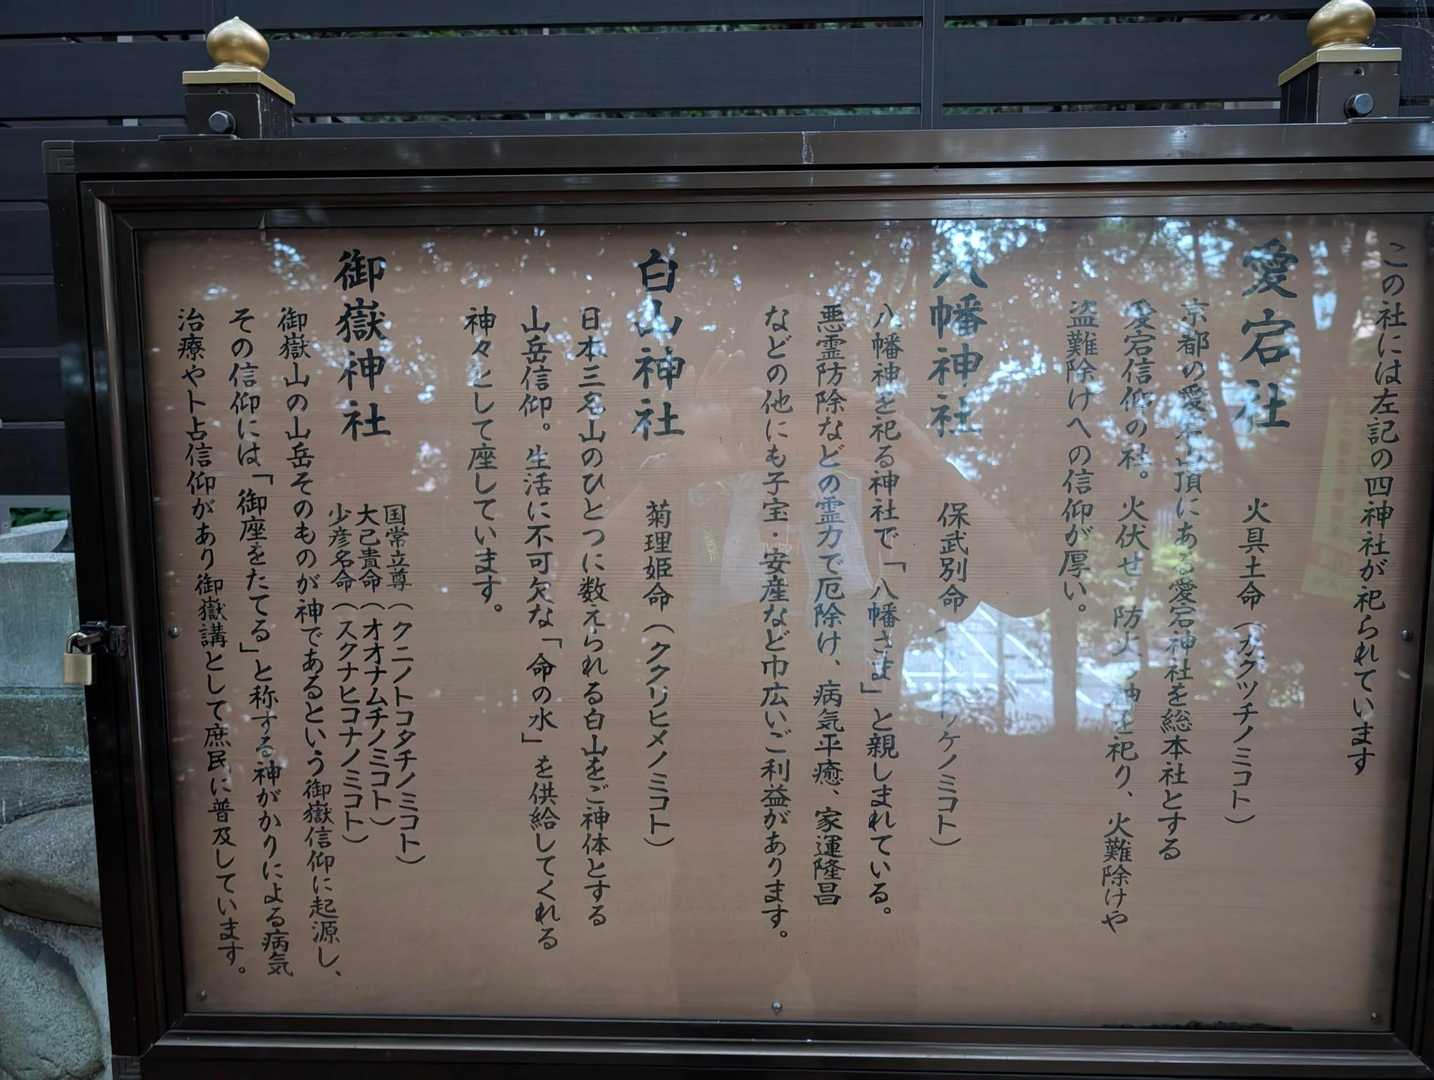 この社には左記の四神社が祀られています
愛宕社
火具土命（カグツチノミコト）
京都の愛宕山頂にある愛宕神社を総本社とする
愛宕信仰の社。火伏せ、防火の神を祀り、火難除けや
盗難除けへの信仰が厚い。
八幡神社
保武別命（ ワケノミコト）
八幡神を祀る神社で「八幡さま」と親しまれている。
悪霊防除などの霊力で厄除け、病気平癒、家運隆昌
などの他にも子宝・安産など巾広いご利益があります。
白山神社
菊理姫命（ククリヒメノミコト）
日本三名山のひとつに数えられる白山をご神体とする
山岳信仰。生活に不可欠な「命の水」を供給してくれる
神々として座しています。
御嶽神社
国常立尊（クニノトコタチノミコト）
大己貴命（オオナムチノミコト）
少彦名命（スクナヒコナノミコト）
御嶽山の山岳そのものが神であるという御嶽信仰に起源し、
その信仰には「御座をたてる」と称する神がかりによる病気
治療や卜占信仰があり御嶽講として庶民に普及しています。